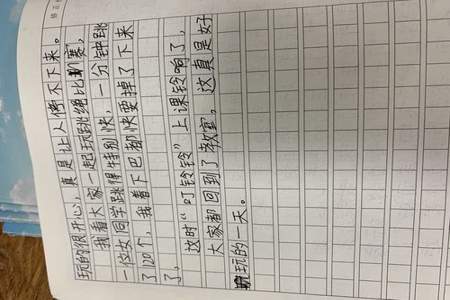 玩的很开心，真是让人停不下来。
我看大家一起玩跳绳比赛，
一位女同学跳得特别快，一分钟跳
了120个，我看下巴都快要掉了下来
了，
这时“叮铃铃”上课铃响了，
大家都回到了教室，这真是好
玩的一天。